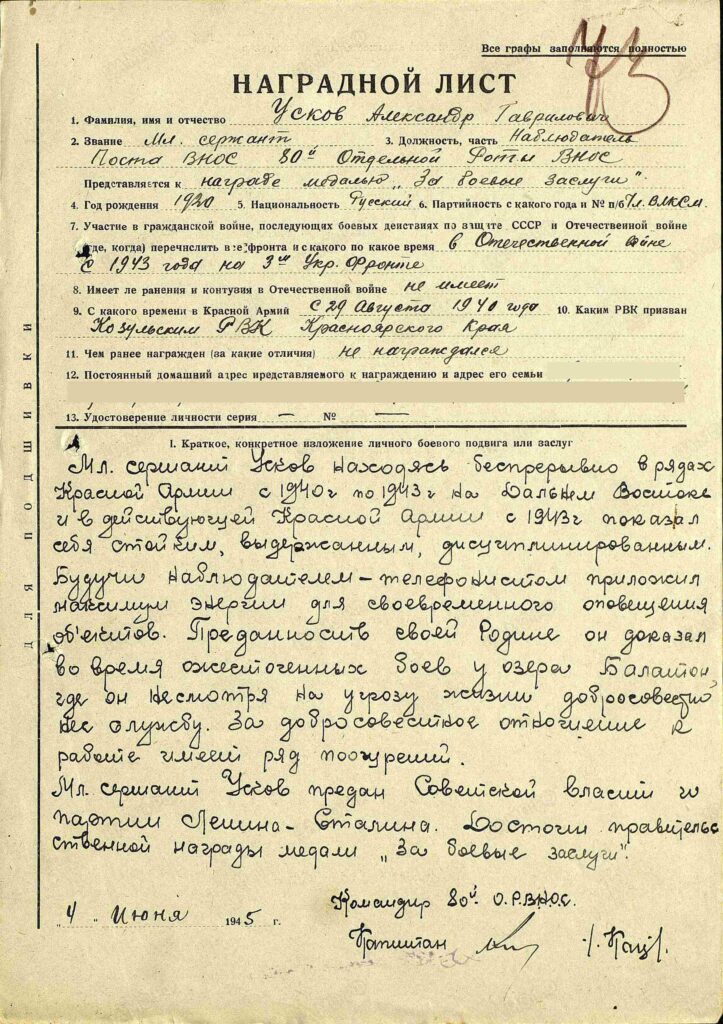 Все графы заполняются полностью
73
НАГРАДНОЙ ЛИСТ
1. Фамилия, имя и отчество Усков Александр Гаврилович
2. Звание Мл. сержант 3. Должность, часть Наблюдатель
Поста ВНОС 80й Отдельной Роты ВНОС
Представляется к награде медалью „За боевые заслуги".
4. Год рождения 1920 5. Национальность Русский 6. Партийность с какого года и № п/б Чл. ВЛКСМ.
7. Участие в гражданской войне, последующих боевых действиях по защите СССР и Отечественной войне
(где, когда) перечислить все фронта и с какого по какое время в Отечественной войне
с 1943 года на 3ем Укр. Фронте
8. Имеет ле ранения и контузия в Отечественной войне не имеет
9. С какого времени в Красной Армий с 29 Августа 1940 года 10. Каким РВК призван
Козульским РВК Красноярского Края
11. Чем ранее награжден (за какие отличия) не награждался
12. Постоянный домашний адрес представляемого к награждению и адрес его семьи
13. Удостоверение личности серия — № —
ДЛЯ ПОДШИВКИ
I. Краткое, конкретное изложение личного боевого подвига или заслуг
Мл. сержант Усков находясь беспрерывно в рядах
Красной Армии с 1940г по 1943г на Дальнем Востоке
и в действующей Красной Армии с 1943г показал
себя стойким, выдержанным, дисциплинированным.
Будучи наблюдателем – телефонистом приложил
максимум энергии для своевременного оповещения
об'ектов. Преданность своей Родине он доказал
во время ожесточенных боев у озера Балатон,
где он несмотря на угрозу жизни добросовестно
нес службу. За добросовестное отношение к
работе имеет ряд поощрений.
Мл. сержант Усков предан Советской власти и
партии Ленина-Сталина. Достоин правительс
ственной награды медали „За боевые заслуги".
Командир 80й О.Р.ВНОС.
„4" Июня 1945 г.
Капитан /Кац/.